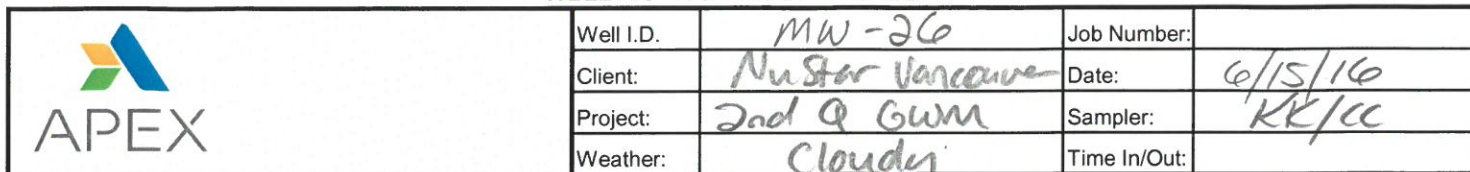 APEX
Well I.D. MW-26 Job Number:
Client: NuStar Vancouver Date: 6/15/16
Project: 2nd Q GWM Sampler: KK/CC
Weather: Cloudy Time In/Out: